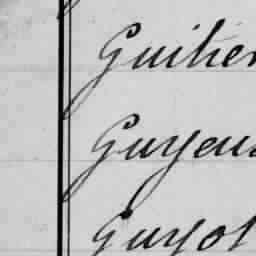 Guilier
Guyeu
Guyot